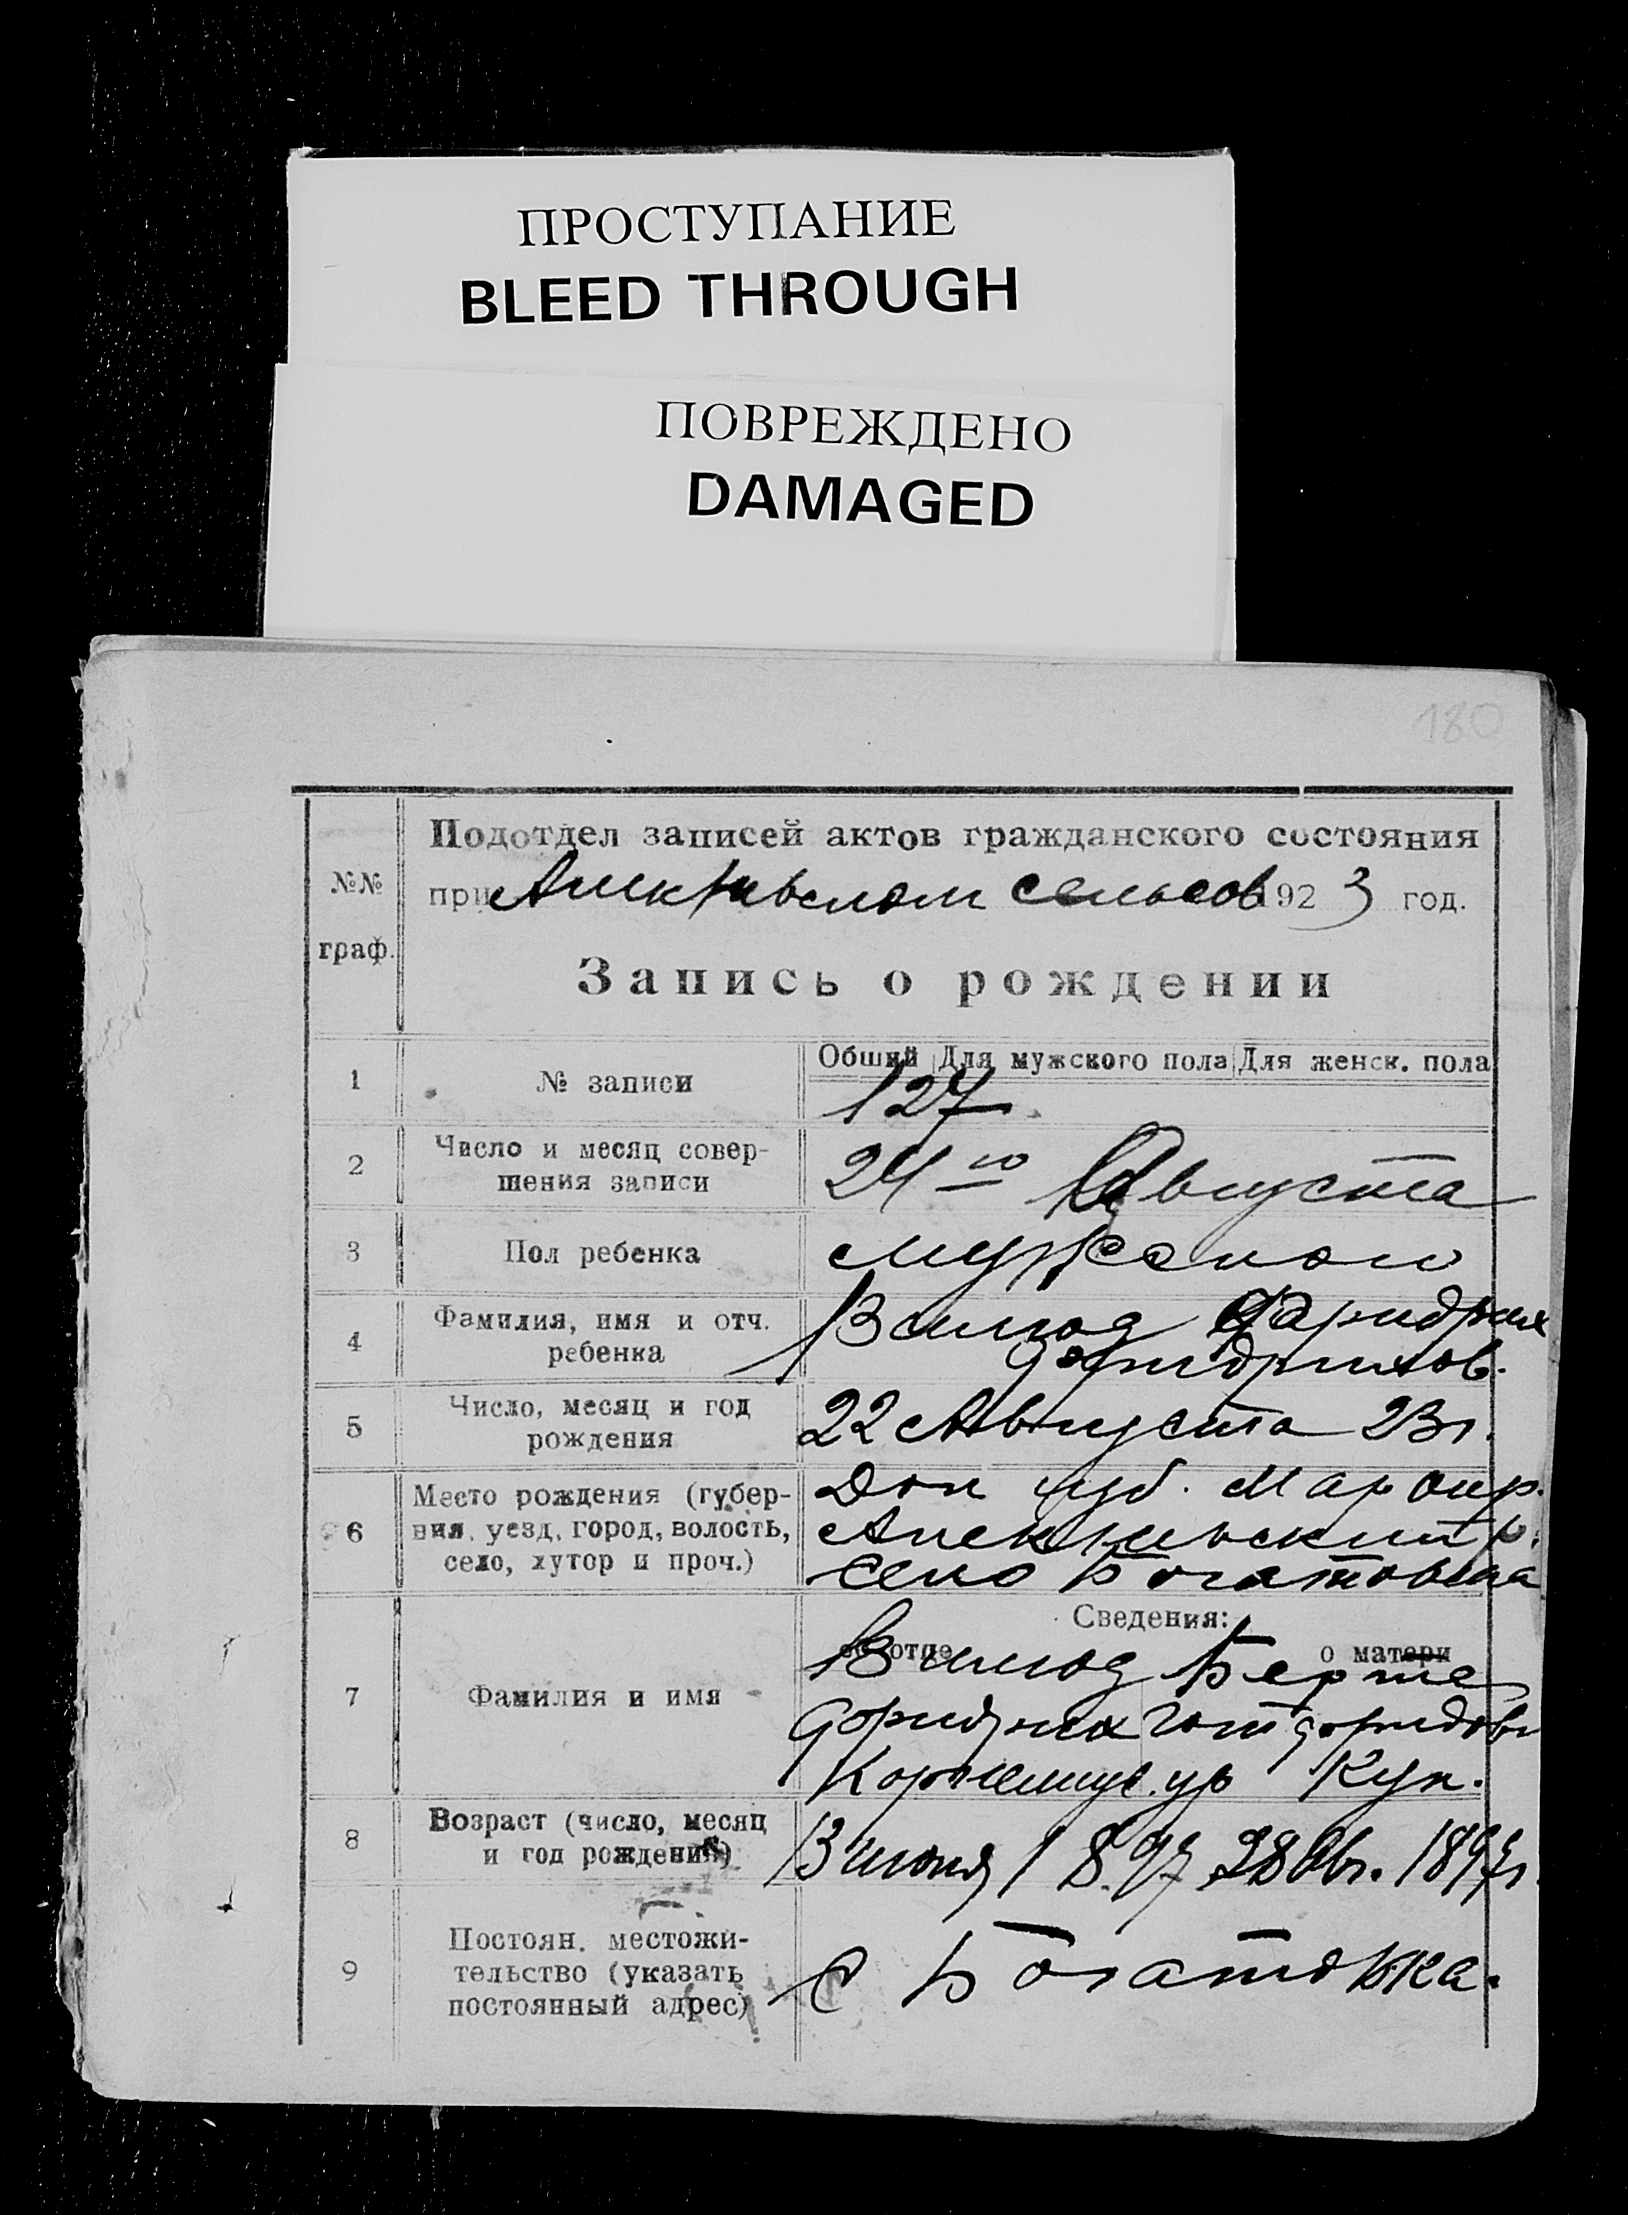 ПРОСТУПАНИЕ
BLEED THROUGH
ПОВРЕЖДЕНО
DAMAGED
180
№№
граф.
Подотдел записей актов гражданского состояния
при сельсов 1923 год.
Запись о рождении
1
№ записи
Общий Для мужского пола Для женск. пола
127
2
Число и месяц совер-
шения записи
24го Августа
3
Пол ребенка
4
Фамилия, имя и отч.
ребенка
5
Число, месяц и год
рождения
22 Августа 23г.
6
Место рождения (губер-
ния, уезд, город, волость,
село, хутор и проч.)
Дон губ. Мар окр.
село Богатовка
Сведения:
об отце
о матери
7
Фамилия и имя
8
Возраст (число, месяц
и год рождения)
1897 28 Авг. 1897г.
9
Постоян. местожи-
тельство (указать
постоянный адрес)
с Богатовка.